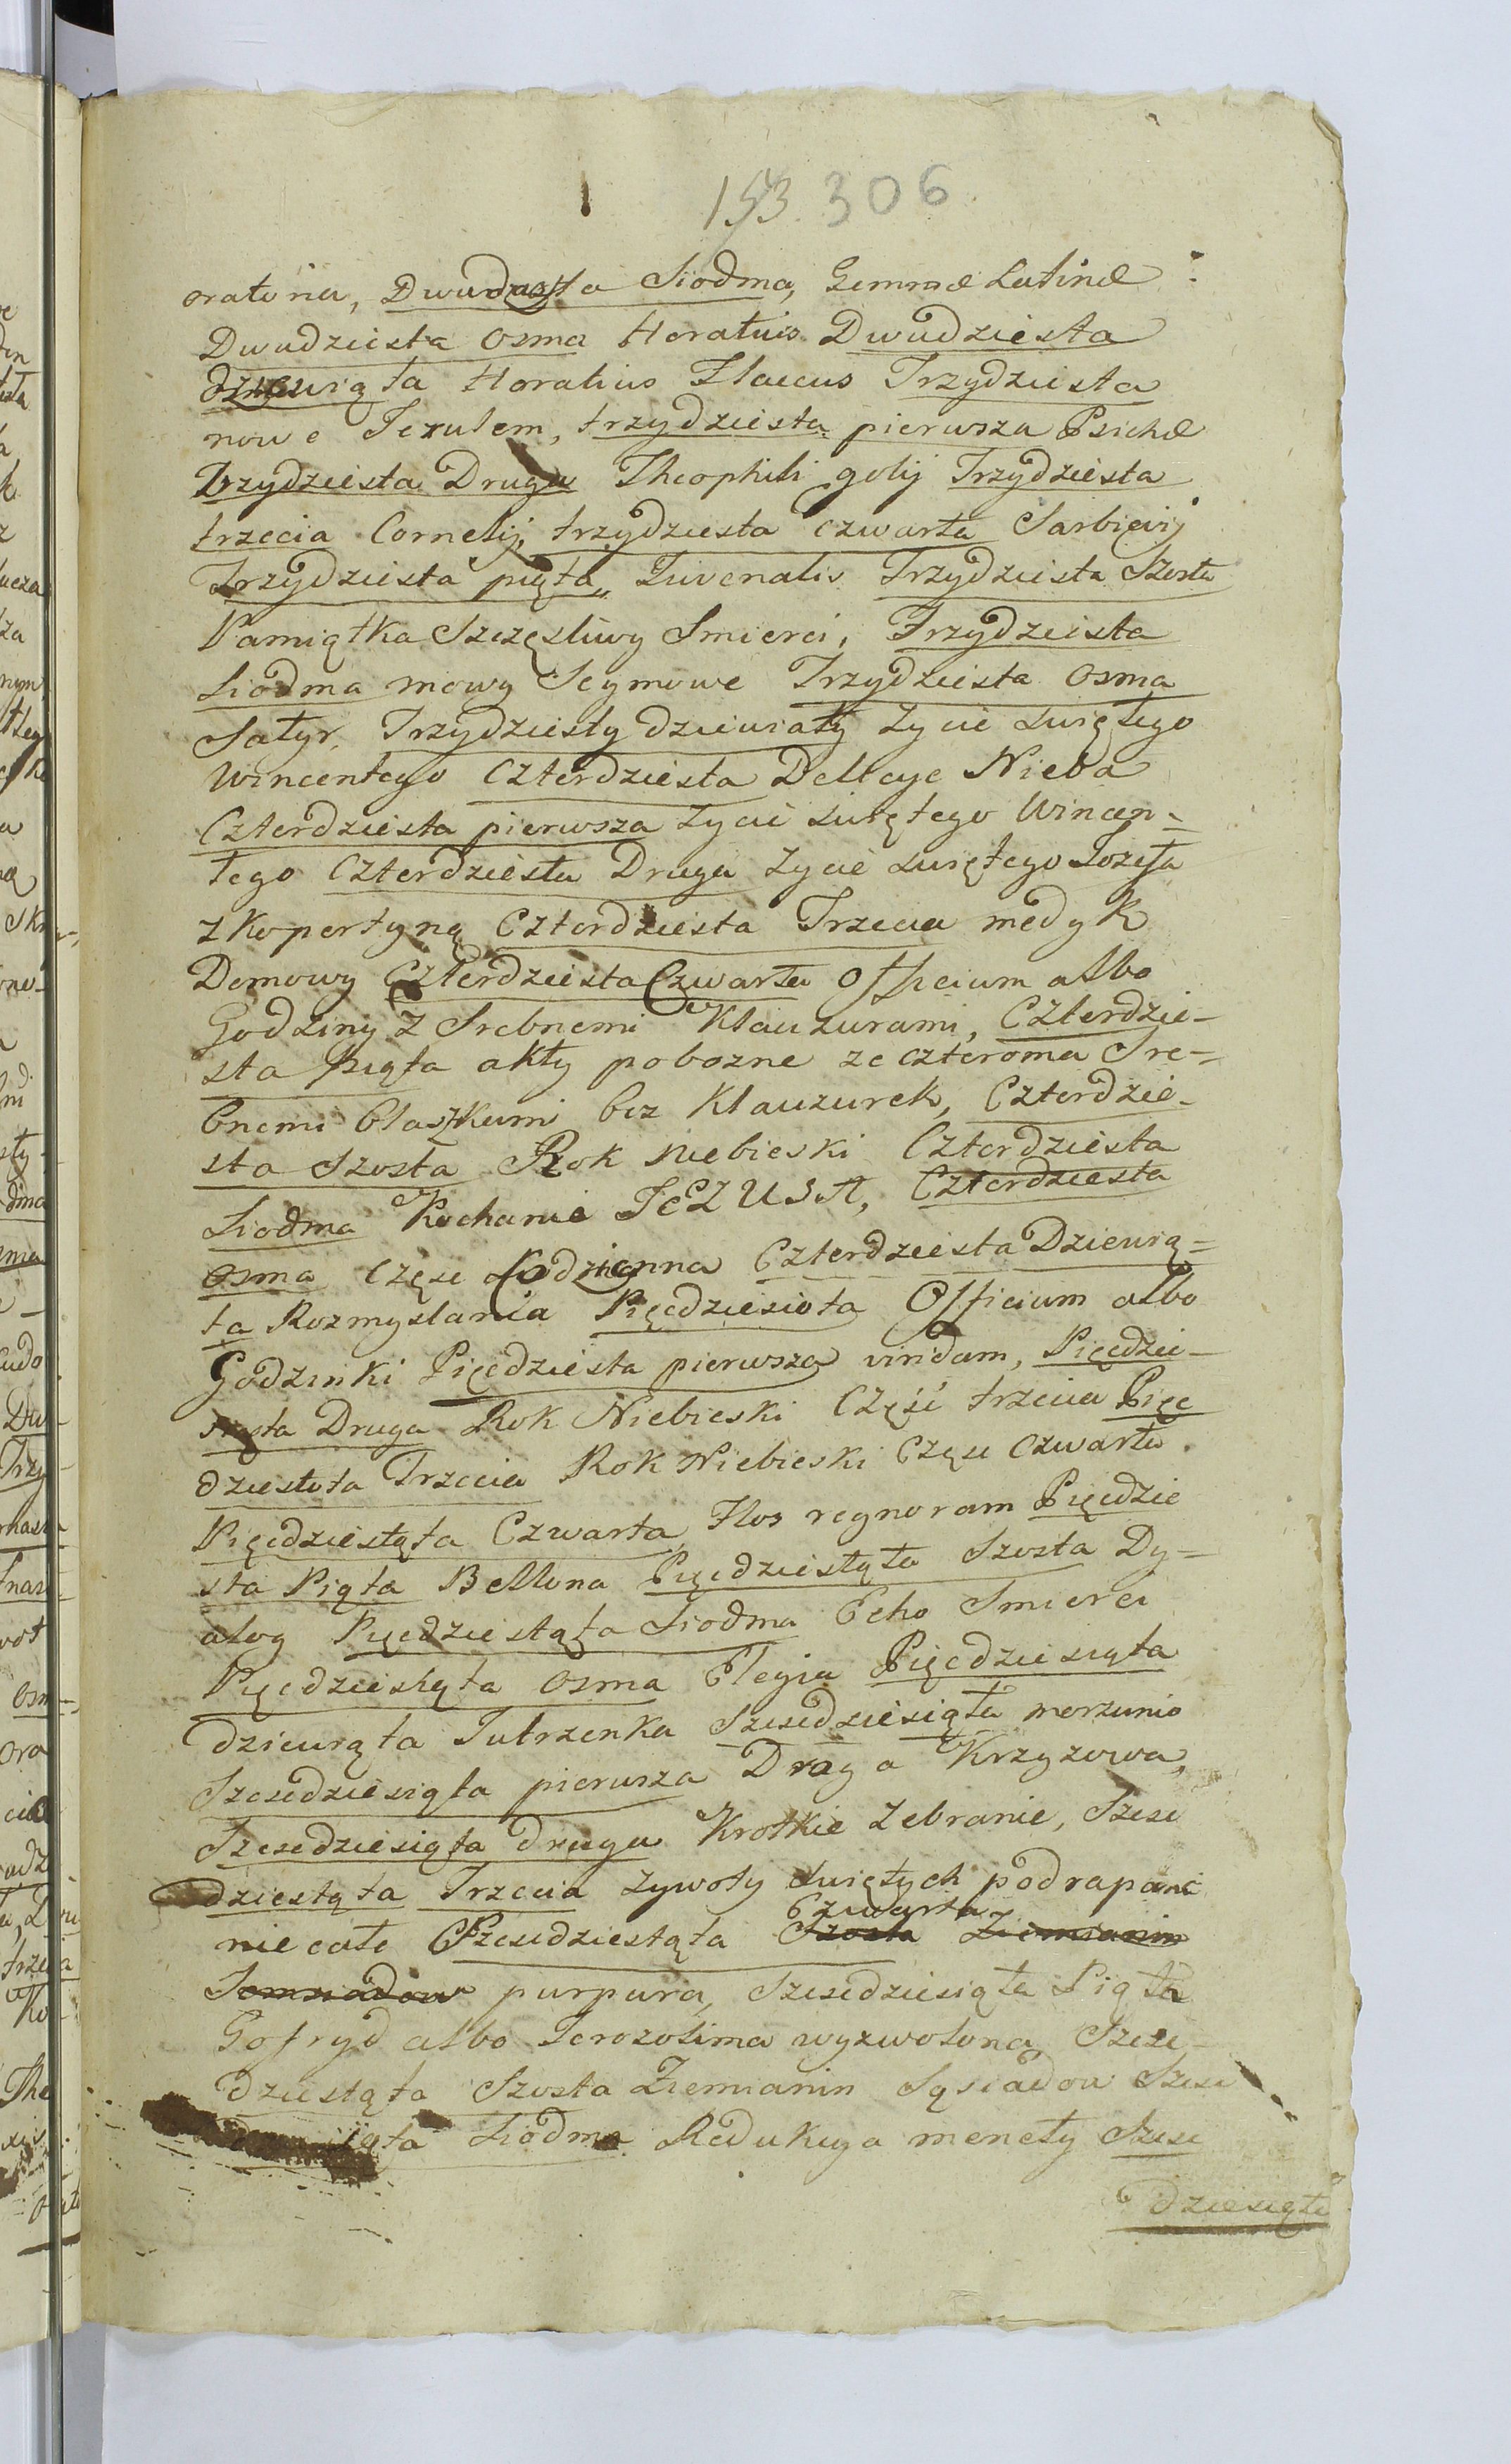 153. 306
oratoria, Dwudziesta Siodma, Gemmæ Latinæ
Dwudziesta osma Horatius Dwudziesta
dziewiąta Horatius Flaccus Trzydziesta
nowe Jeruzlem, trzydziesta pierwsza Psichæ
Trzydziesta Druga Theophili golij Trzydziesta
trzecia Cornelij, trzydziesta czwarta Sarbievij
Trzydziesta piąta, Juvenalis Trzydziesta Szosta
Pamiątka Szczęsliwy Smierci, Trzydziesta
Siodma mowy Seymowe Trzydziesta osma
Satyr, Trzydziesty dziewiaty Zycie swiętego
Wincentego Czterdziesta Dellcye Nieba
Czterdziesta pierwsza Zycie swiętego Wincen=
tego Czterdziesta Druga Zycie swiętego Jozefa
z Kopertyną Czterdziesta Trzecia medyk
Domowy Czterdziesta Czwarta Officium albo
Godziny z Srebnemi Klauzurami, Czterdzie-
sta Piąta akty pobozne ze czteroma Sre=
bnemi blaszkami bez Klauzurek, Czterdzie-
sta Szosta Rok Niebieski Czterdziesta
Siodma Kochanie JEZUSA, Czterdziesta
osma Częsc Codzienna Czterdziesta Dziewią=
ta Rozmyslania Pięcdziesiota Officium albo
Godzinki Pięcdziesta pierwsza viridam, Pięcdzie-
sięta Druga Rok Niebieski Część trzecia Pięc
dziestota Trzecia Rok Niebieski Częsc Czwarta.
Pięcdziestąta Czwarta, Flos regnoram Pięcdzie
sta Piąta Bellona Pięcdziestąta Szosta Dy=
alog Pięcdziestąta Siodma Echo Smierci
Pięcdziestąta osma Elegia Pięcdziesiąta
dziewiąta Jutrzenka Szescdziesiąta morzunio
Szescdziesiąta pierwsza Droga Krzyzowa,
Szescdziesiąta druga Krotkie Zebranie, Szesc
dziestąta Trzecia Zywoty swiętych podrapane
Czwarta
niecałe Szescdziestąta Szosta Ziemianin
purpura, Szescdziesiąta Piąta
Gofryd albo Jerozolima wyzwolona Szesc-
dziestąta Szosta Ziemianin Sąsiadow Szesc
iąta Siodma Redukcya menety Szesc
dziesiąta